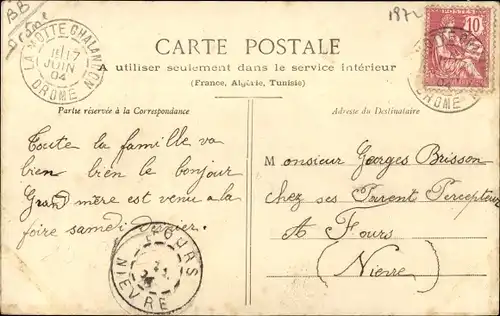 BB
Drôme
1872
LA MOTTE CHALANCON
17
JUIN
04
DROME
CARTE POSTALE
à utiliser seulement dans le service intérieur
(France, Algérie, Tunisie)
10
DROME
Partie réservée à la Correspondance
Adresse du Destinataire
Toute la famille va
bien bien le bonjour
Grand mère est venu a la
foire samedi dernier.
Monsieur Georges Brisson
chez ses Parent Percepteur
A Fours
(Nievre)
FOURS
NIEVRE